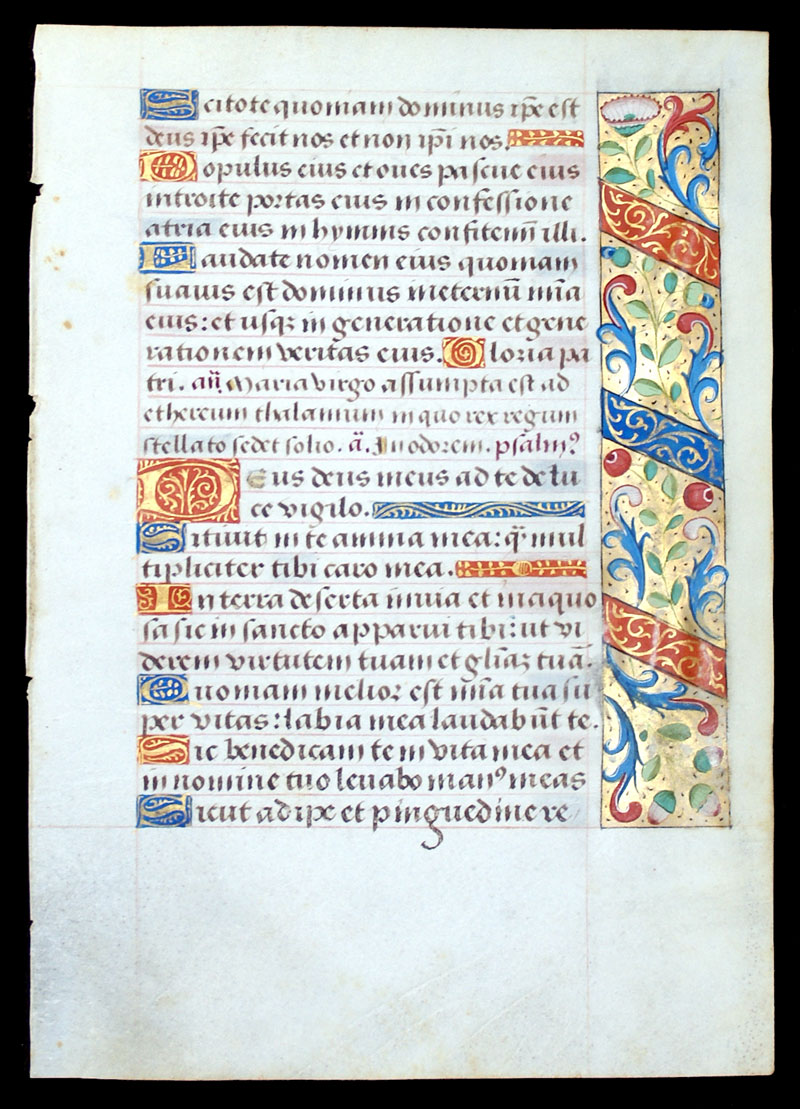 Scitote quoniam dominus ipse est
deus ipe fecit nos et non ipi nos.
Populus eius et oues pascue eius
introite portas eius in confessione
atria eius in hymnis confitemi illi.
Laudate nomen eius quoniam
suauis est dominus ineternū mīa
eius: et usqz in generatione et gene
rationem veritas eius. Gloria pa
tri. añ. Maria virgo assumpta est ad
ethereum thalamum in quo rex regum
stellato sedet solio. ā. In odorem. psalmꝰ
Deus deus meus ad te de lu
ce vigilo.
Sitiuit in te anima mea: q̄ mul
tipliciter tibi caro mea.
In terra deserta inuia et inaquo
sa sic in sancto apparui tibi: ut vi
derem virtutem tuam et gl̄iaz tuā.
Quoniam melior est mīa tua su
per vitas: labia mea laudabūt te.
Sic benedicam te in vita mea et
in nomine tuo leuabo manꝰ meas
Sicut adipe et pinguedine re